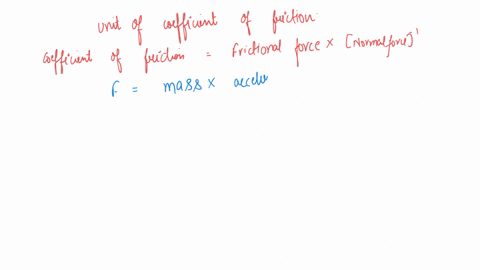 unit of coefficient of friction:
coefficient of friction = Frictional force × [Normal force]¹
F = mass × accele